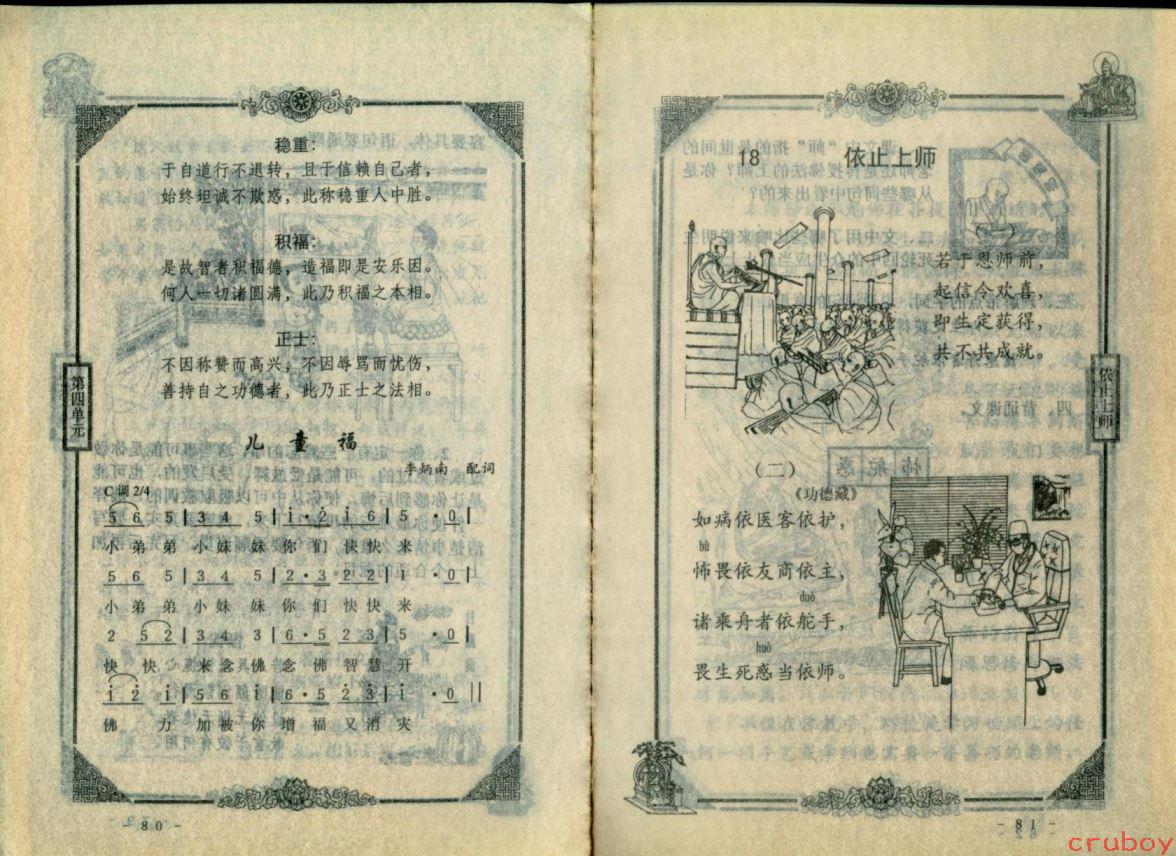 稳重：
于自道行不退转，且于信赖自己者，
始终坦诚不欺惑，此称稳重人中胜。
积福：
是故智者积福德，造福即是安乐因。
何人一切诸圆满，此乃积福之本相。
正士：
不因称赞而高兴，不因辱骂而忧伤，
善持自之功德者，此乃正士之法相。
第四单元
儿童福
李炳南 配词
C调2/4
5 6 5 | 3 4 5 | i · 2 i 6 | 5 · 0 |
小 弟 弟 小 妹 妹 你 们 快 快 来
5 6 5 | 3 4 5 | 2 · 3 2 2 | i · 0 |
小 弟 弟 小 妹 妹 你 们 快 快 来
2 5 2 | 3 4 3 | 6 · 5 2 3 | 5 · 0 |
快 快 来 念 佛 念 佛 智 慧 开
i 2 i | 5 6 i | 6 · 5 2 3 | i · 0 ||
佛 力 加 被 你 增 福 又 消 灾
- 80 -
18 依止上师
若于恩师前，
起信令欢喜，
即生定获得，
共不共成就。
依止上师
（二）
《功德藏》
如病依医客依护，
bù
怖畏依友商依主，
duò
诸乘舟者依舵手，
huò
畏生死惑当依师。
- 81 -
cruboy